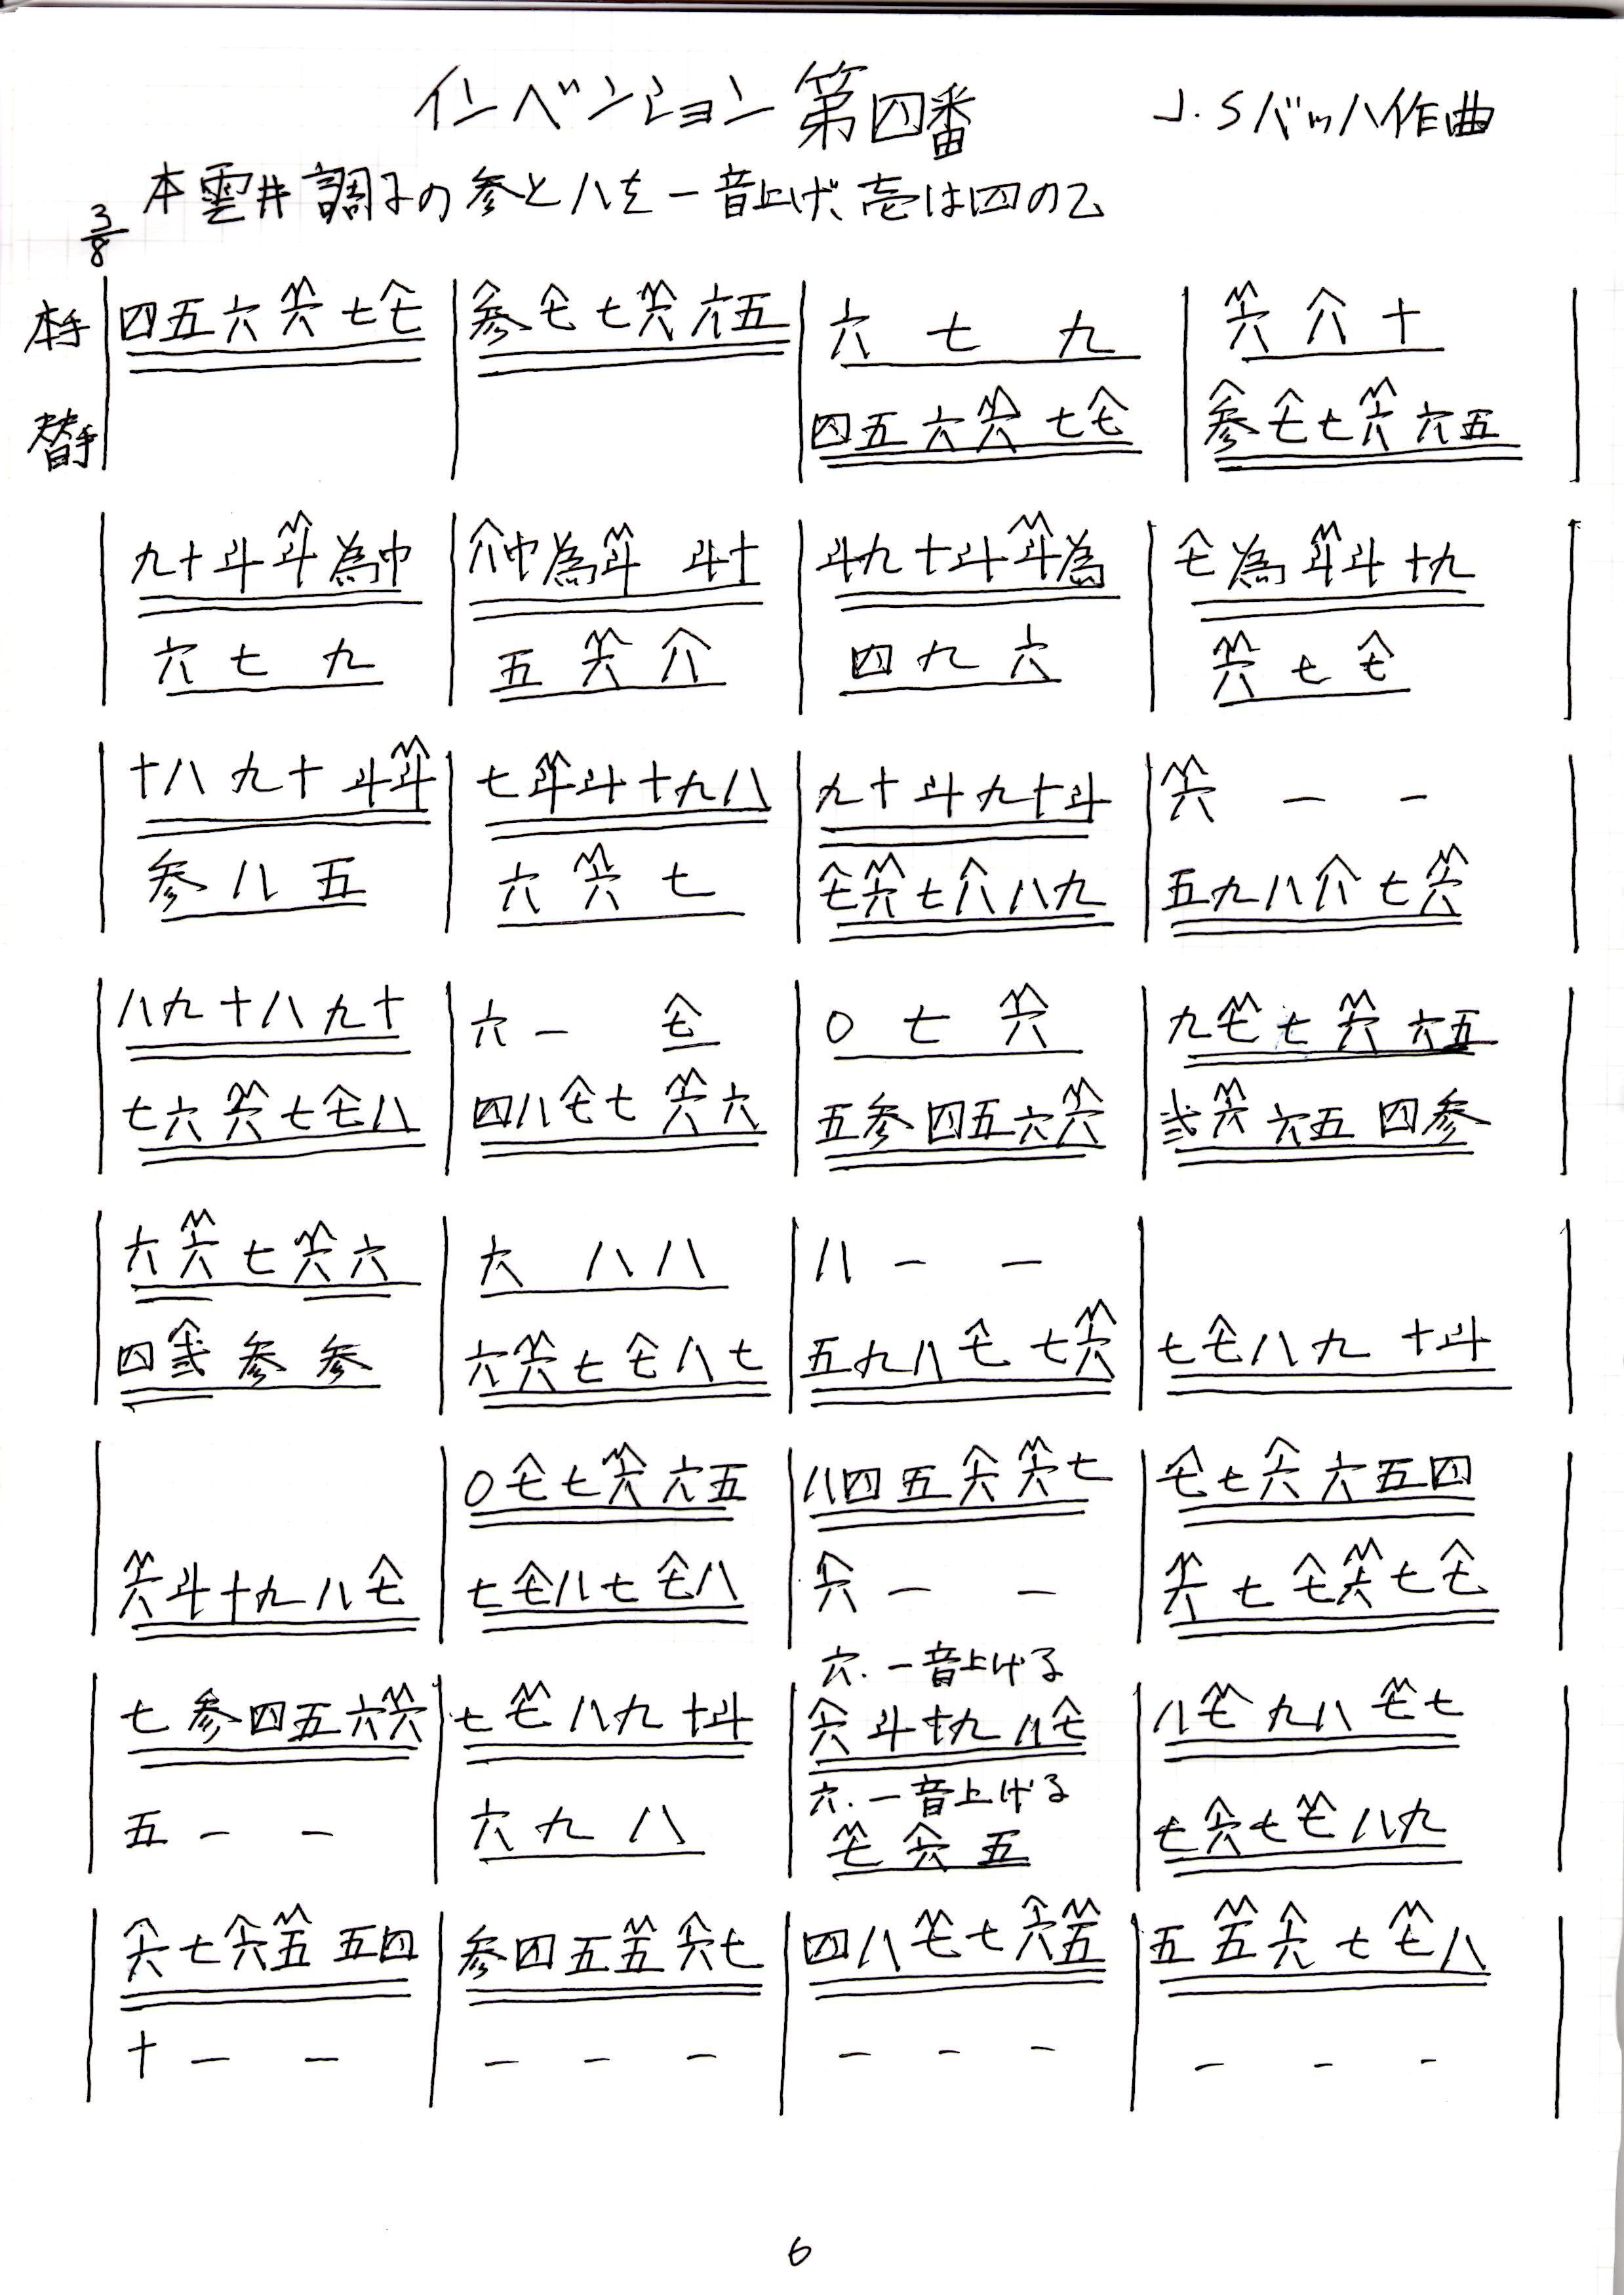 インベンション第四番 J.Sバッハ作曲
本雲井調子の参と八を一音上げ、壱は四の乙
3/8
本手 四五六六七七 参七七六六五 六七九 六八十
替手 四五六六七七 参七七六六五
九十斗斗為巾 八巾為斗斗十 斗九十斗斗為 七為斗斗十九
六七九 五六八 四九六 六七七
十八九十斗斗 七斗斗十九八 九十斗九十斗 六ーー
参八五 六六七 七六七八八九 五九八八七六
八九十八九十 六ー七 0七六 九七七六六五
七六六七七八 四八七七六六 五参四五六六 弐六六五四参
六六七六六 六八八 八ーー
四弐参参 六六七七八七 五九八七七六 七七八九十斗
0七七六六五 八四五六六七 七七六六五四
六斗十九八七 七七八七七八 六ーー 六七七六七七
六.一音上げる
七参四五六六 七七八九十斗 六斗十九八七 八七九八七七
六.一音上げる
五ーー 六九八 七六五 七六七七八九
六七六五五四 参四五五六七 四八七七六五 五五六七七八
十ーー ーーー ーーー ーーー
6